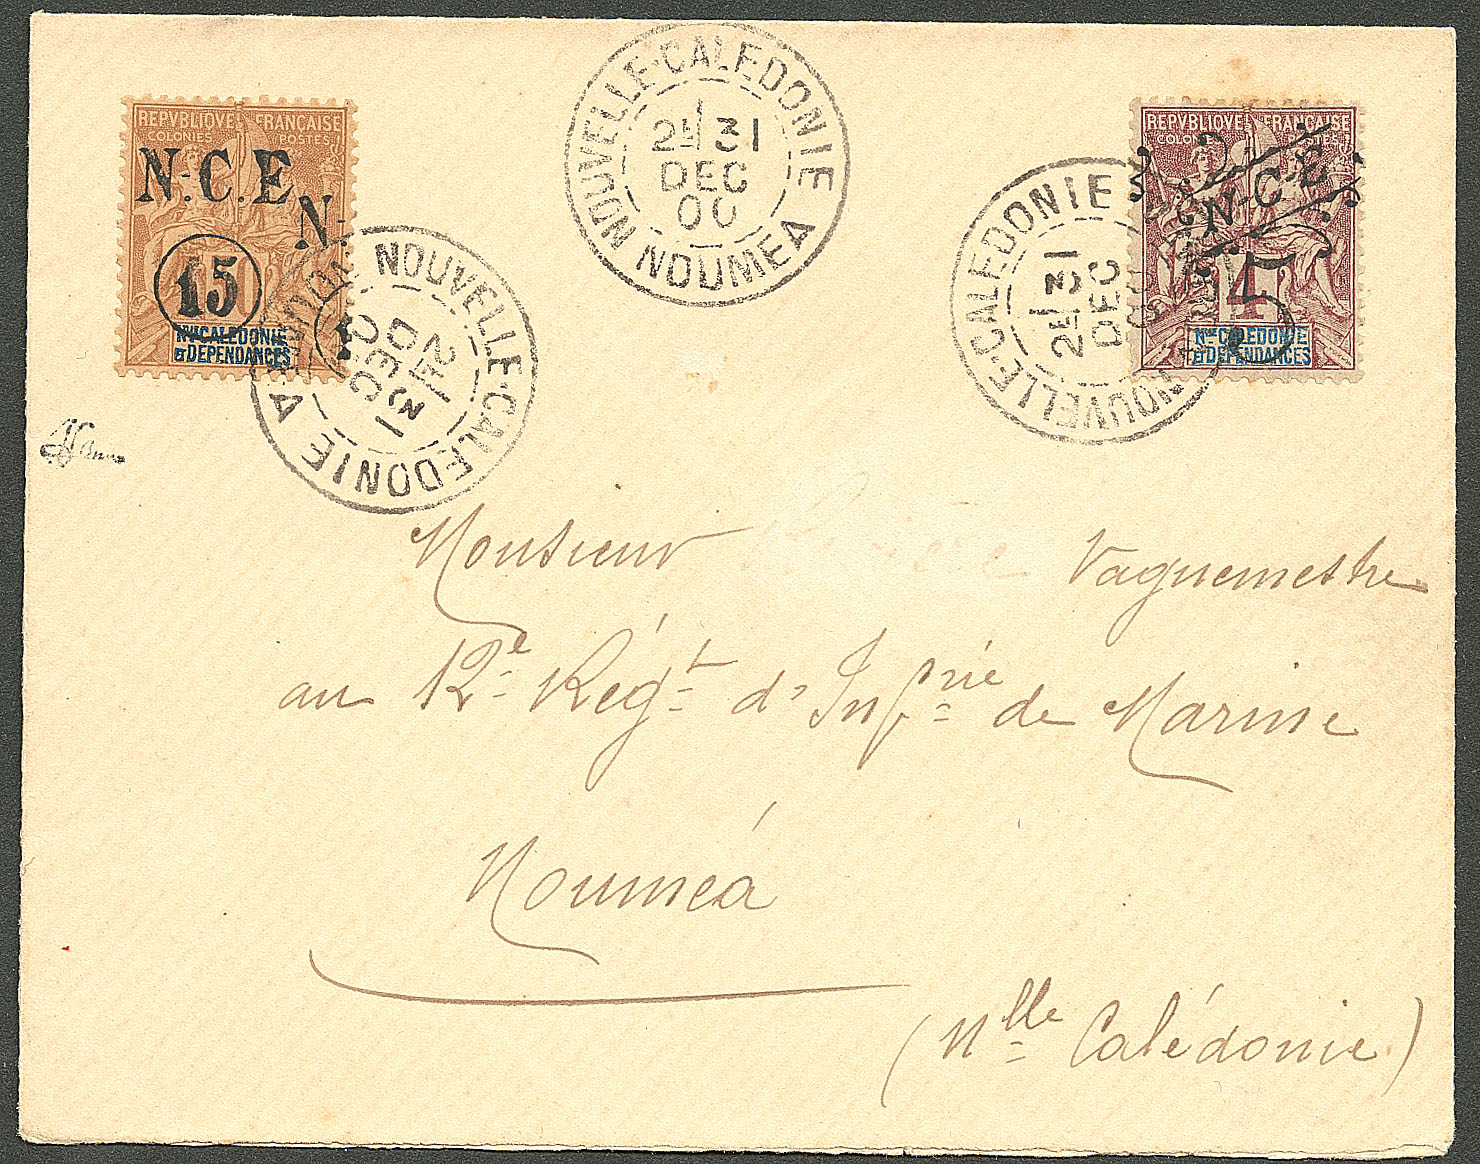 REPVBLIQVE FRANÇAISE
COLONIES POSTES
N.-C.E.
N.-
15
Nlle CALEDONIE
ET DEPENDANCES
NOUVELLE-CALEDONIE
2E 31
DEC
00
NOUMEA
REPVBLIQVE FRANÇAISE
COLONIES
N-C-E
4
5
Nlle CALEDONIE
ET DEPENDANCES
NOUVELLE-CALEDONIE
2E 31
DEC
NOUVELLE-CALEDONIE
2E 31
DEC
Monsieur Vaguemestre
au 12e Régt d'Infrie de Marine
Nouméa
(Nlle Calédonie)